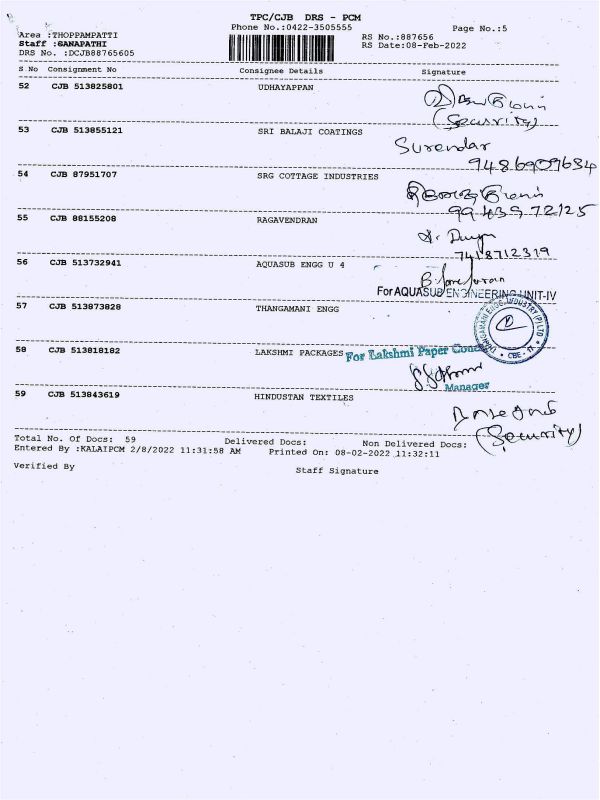 TPC/CJB DRS - PCM
Phone No.:0422-3505555 Page No.:5
Area :THOPPAMPATTI RS No.:887656
Staff :GANAPATHI RS Date:08-Feb-2022
DRS No. :DCJB88765605
S No Consignment No Consignee Details Signature
52 CJB 513825801 UDHAYAPPAN
(Security)
53 CJB 513855121 SRI BALAJI COATINGS
Surendar
9486909684
54 CJB 87951707 SRG COTTAGE INDUSTRIES
99439 72125
55 CJB 88155208 RAGAVENDRAN
7418712319
56 CJB 513732941 AQUASUB ENGG U 4
For AQUASUB ENGINEERING UNIT-IV
57 CJB 513873828 THANGAMANI ENGG
THANGAMANI ENGG. INDUSTRY (P) LTD
CBE - 11
58 CJB 513818182 LAKSHMI PACKAGES
For Lakshmi Paper
Manager
59 CJB 513843619 HINDUSTAN TEXTILES
(Security)
Total No. Of Docs: 59 Delivered Docs: Non Delivered Docs:
Entered By :KALAIPCM 2/8/2022 11:31:58 AM Printed On: 08-02-2022 11:32:11
Verified By Staff Signature